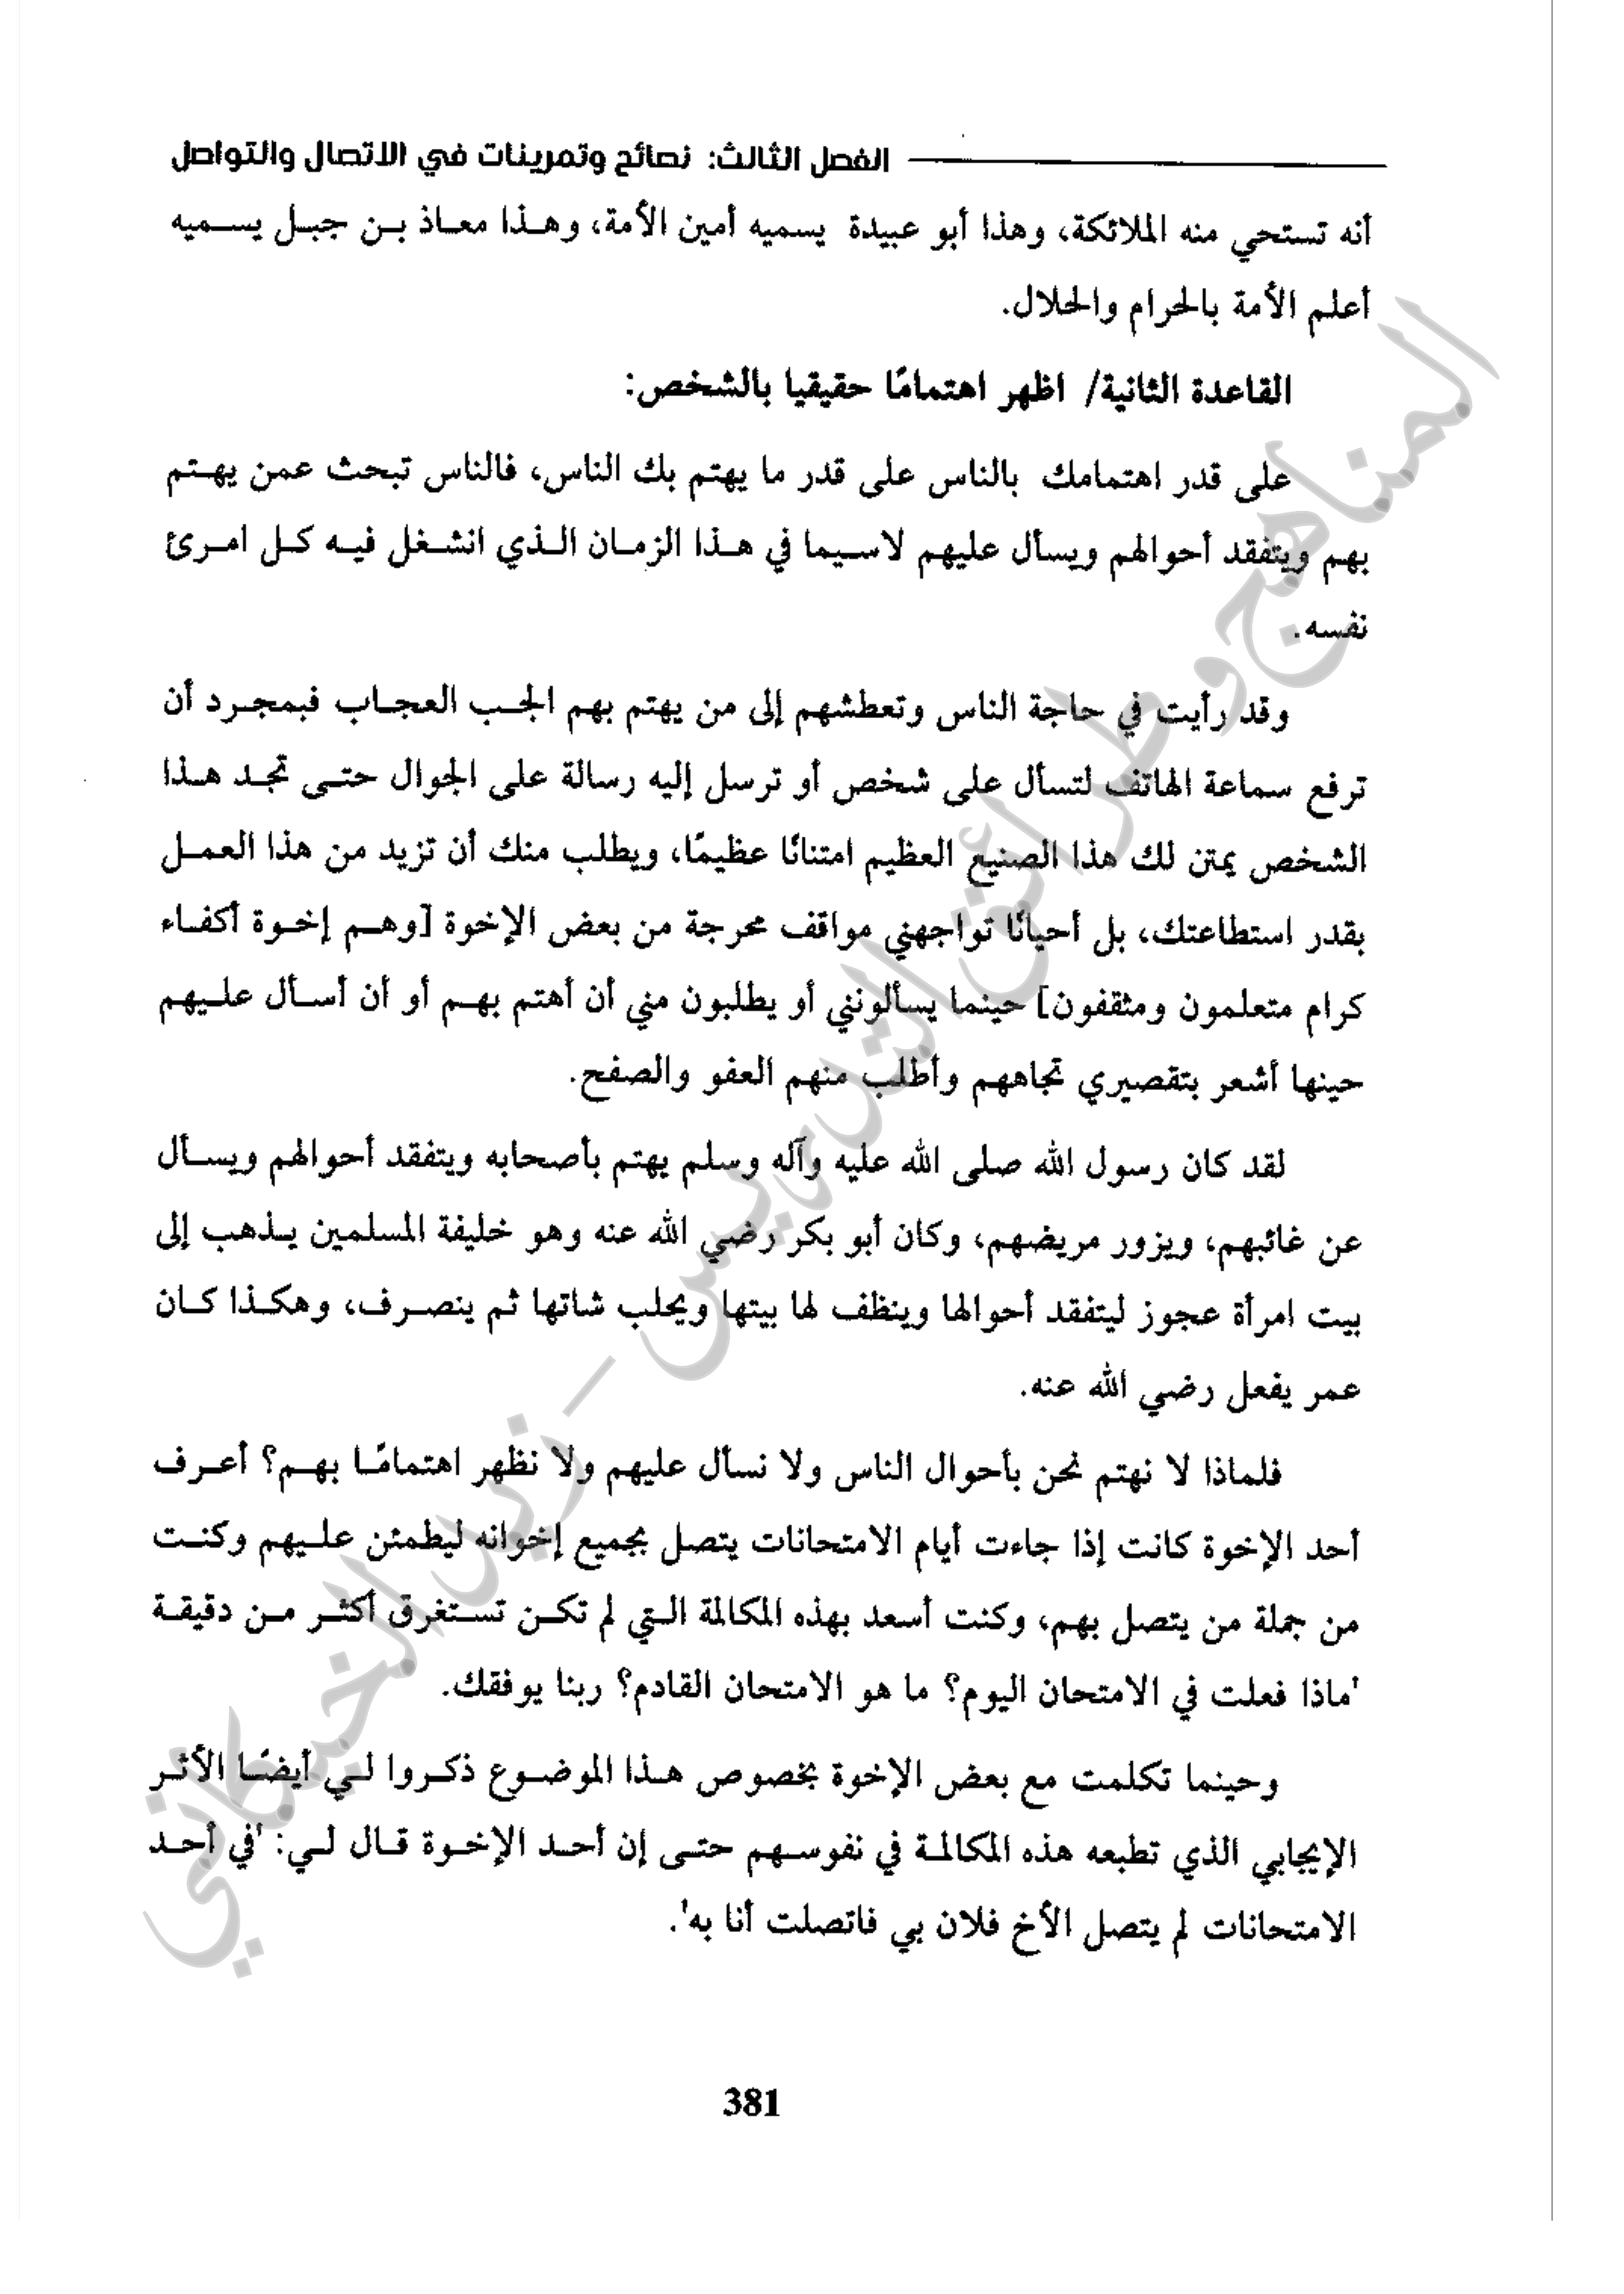 الفصل الثالث: نصائح وتمرينات في الاتصال والتواصل
أنه تستحي منه الملائكة، وهذا أبو عبيدة يسميه أمين الأمة، وهذا معاذ بن جبل يسميه
أعلم الأمة بالحرام والحلال.
القاعدة الثانية/ اظهر اهتمامًا حقيقيا بالشخص:
على قدر اهتمامك بالناس على قدر ما يهتم بك الناس، فالناس تبحث عمن يهتم
بهم ويتفقد أحوالهم ويسأل عليهم لاسيما في هذا الزمان الذي انشغل فيه كل امرئ
نفسه.
وقد رأيت في حاجة الناس وتعطشهم إلى من يهتم بهم الجب العجاب فبمجرد أن
ترفع سماعة الهاتف لتسأل على شخص أو ترسل إليه رسالة على الجوال حتى تجد هذا
الشخص يمتن لك هذا الصنيع العظيم امتنانًا عظيمًا، ويطلب منك أن تزيد من هذا العمل
بقدر استطاعتك، بل أحيانًا تواجهني مواقف محرجة من بعض الإخوة [وهم إخوة أكفاء
كرام متعلمون ومثقفون] حينما يسألونني أو يطلبون مني أن أهتم بهم أو أن أسأل عليهم
حينها أشعر بتقصيري تجاههم وأطلب منهم العفو والصفح.
لقد كان رسول الله صلى الله عليه وآله وسلم يهتم بأصحابه ويتفقد أحوالهم ويسأل
عن غائبهم، ويزور مريضهم، وكان أبو بكر رضي الله عنه وهو خليفة المسلمين يذهب إلى
بيت امرأة عجوز ليتفقد أحوالها وينظف لها بيتها ويحلب شاتها ثم ينصرف، وهكذا كان
عمر يفعل رضي الله عنه.
فلماذا لا نهتم نحن بأحوال الناس ولا نسأل عليهم ولا نظهر اهتمامًا بهم؟ أعرف
أحد الإخوة كانت إذا جاءت أيام الامتحانات يتصل بجميع إخوانه ليطمئن عليهم وكنت
من جملة من يتصل بهم، وكنت أسعد بهذه المكالمة التي لم تكن تستغرق أكثر من دقيقة
'ماذا فعلت في الامتحان اليوم؟ ما هو الامتحان القادم؟ ربنا يوفقك.
وحينما تكلمت مع بعض الإخوة بخصوص هذا الموضوع ذكروا لي أيضًا الأثر
الإيجابي الذي تطبعه هذه المكالمة في نفوسهم حتى إن أحد الإخوة قال لي: 'في أحد
الامتحانات لم يتصل الأخ فلان بي فاتصلت أنا به'.
381
المناهج وطرائق التدريس – زيد الخيكاني